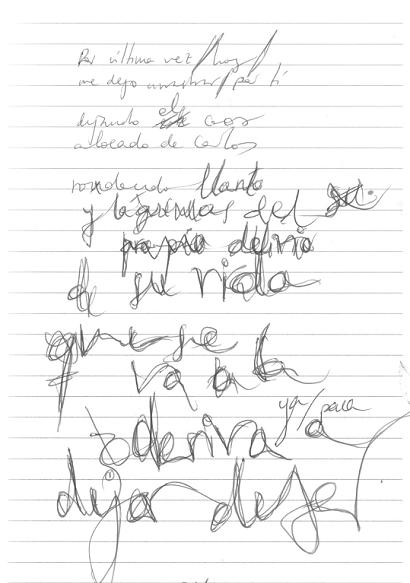 Por última vez / hoy
me dejo arrastrar / por ti
dejando el caos
alocado de Carlos
rondando llanto
y lágrimas del su
propio delirio
de su vida
que se
va a la
deriva
ya / para
dejar de ser